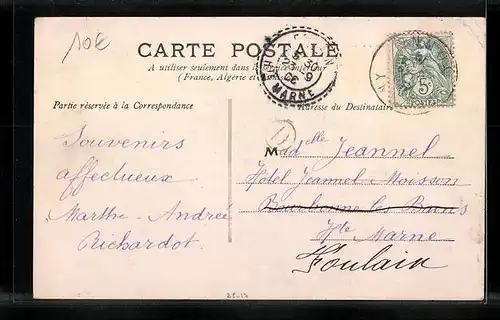 10€
CARTE POSTALE
A utiliser seulement dans le Service Intérieur
(France, Algérie et
Partie réservée à la Correspondance
Adresse du Destinataire
MARNE
5
Souvenirs
affectueux
Marthe-Andrée
Richardot
D
Madelle Jeannel
Hotel Jeannel-Moisson
Bourbonne les Bains
Hte Marne
Foulain